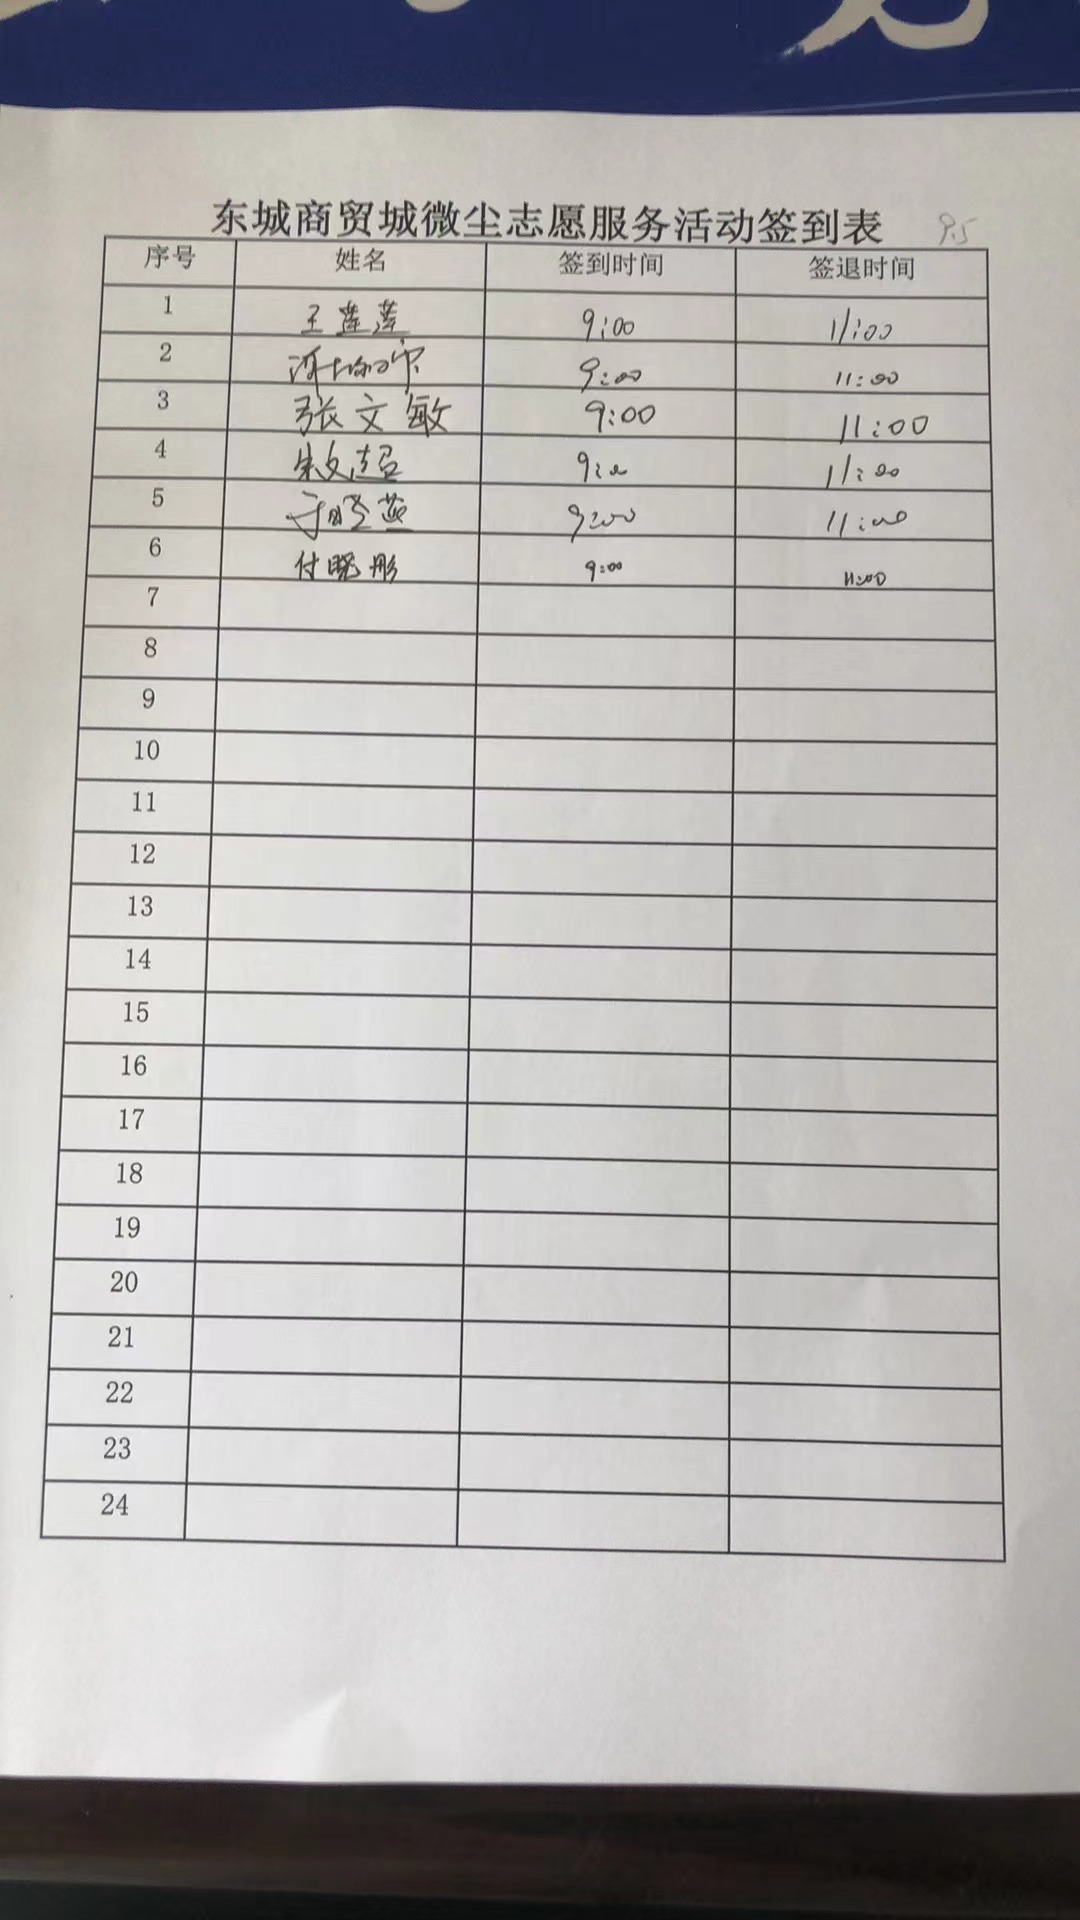 东城商贸城微尘志愿服务活动签到表 9.5
序号 姓名 签到时间 签退时间
1 王莲莲 9:00 11:00
2 9:00 11:00
3 张文敏 9:00 11:00
4 朱文超 9:00 11:00
5 于晓燕 9:00 11:00
6 付晓彤 9:00 11:00
7
8
9
10
11
12
13
14
15
16
17
18
19
20
21
22
23
24